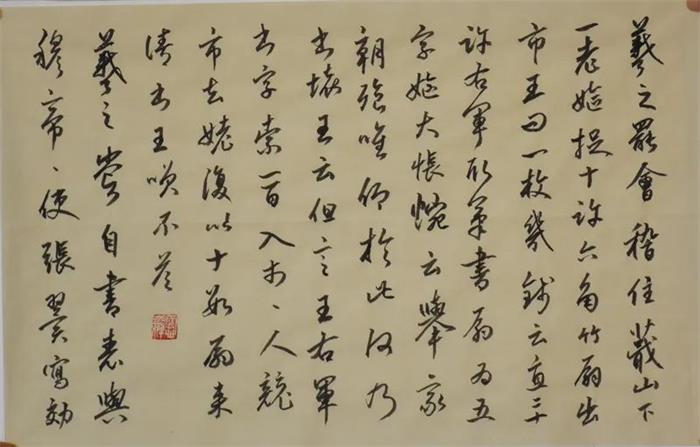 羲之罷會稽住蕺山下
一老嫗捉十許六角竹扇出
市王曰一枚幾錢云直二十
許右軍取筆書扇為五
字嫗大悵惋云舉家
朝飡唯仰於此何乃
書壞王云但言王右軍
書字索一百入市、人競
市去姥復以十數扇來
請書王笑不答
羲之嘗自書表與
穆帝、使張翼寫効